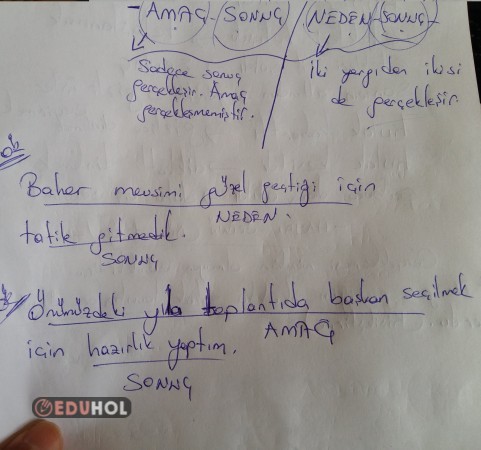 - AMAÇ - SONUÇ / NEDEN - SONUÇ -
Sadece sonuç
gerçekleşir. Amaç
gerçekleşmemiştir.
İki yargıdan ikisi
de gerçekleşir.
Bahar mevsimi güzel geçtiği için
NEDEN.
tatile gitmedik.
SONUÇ
Önümüzdeki yıl toplantıda başkan seçilmek
AMAÇ
için hazırlık yaptım.
SONUÇ
EDUHOL